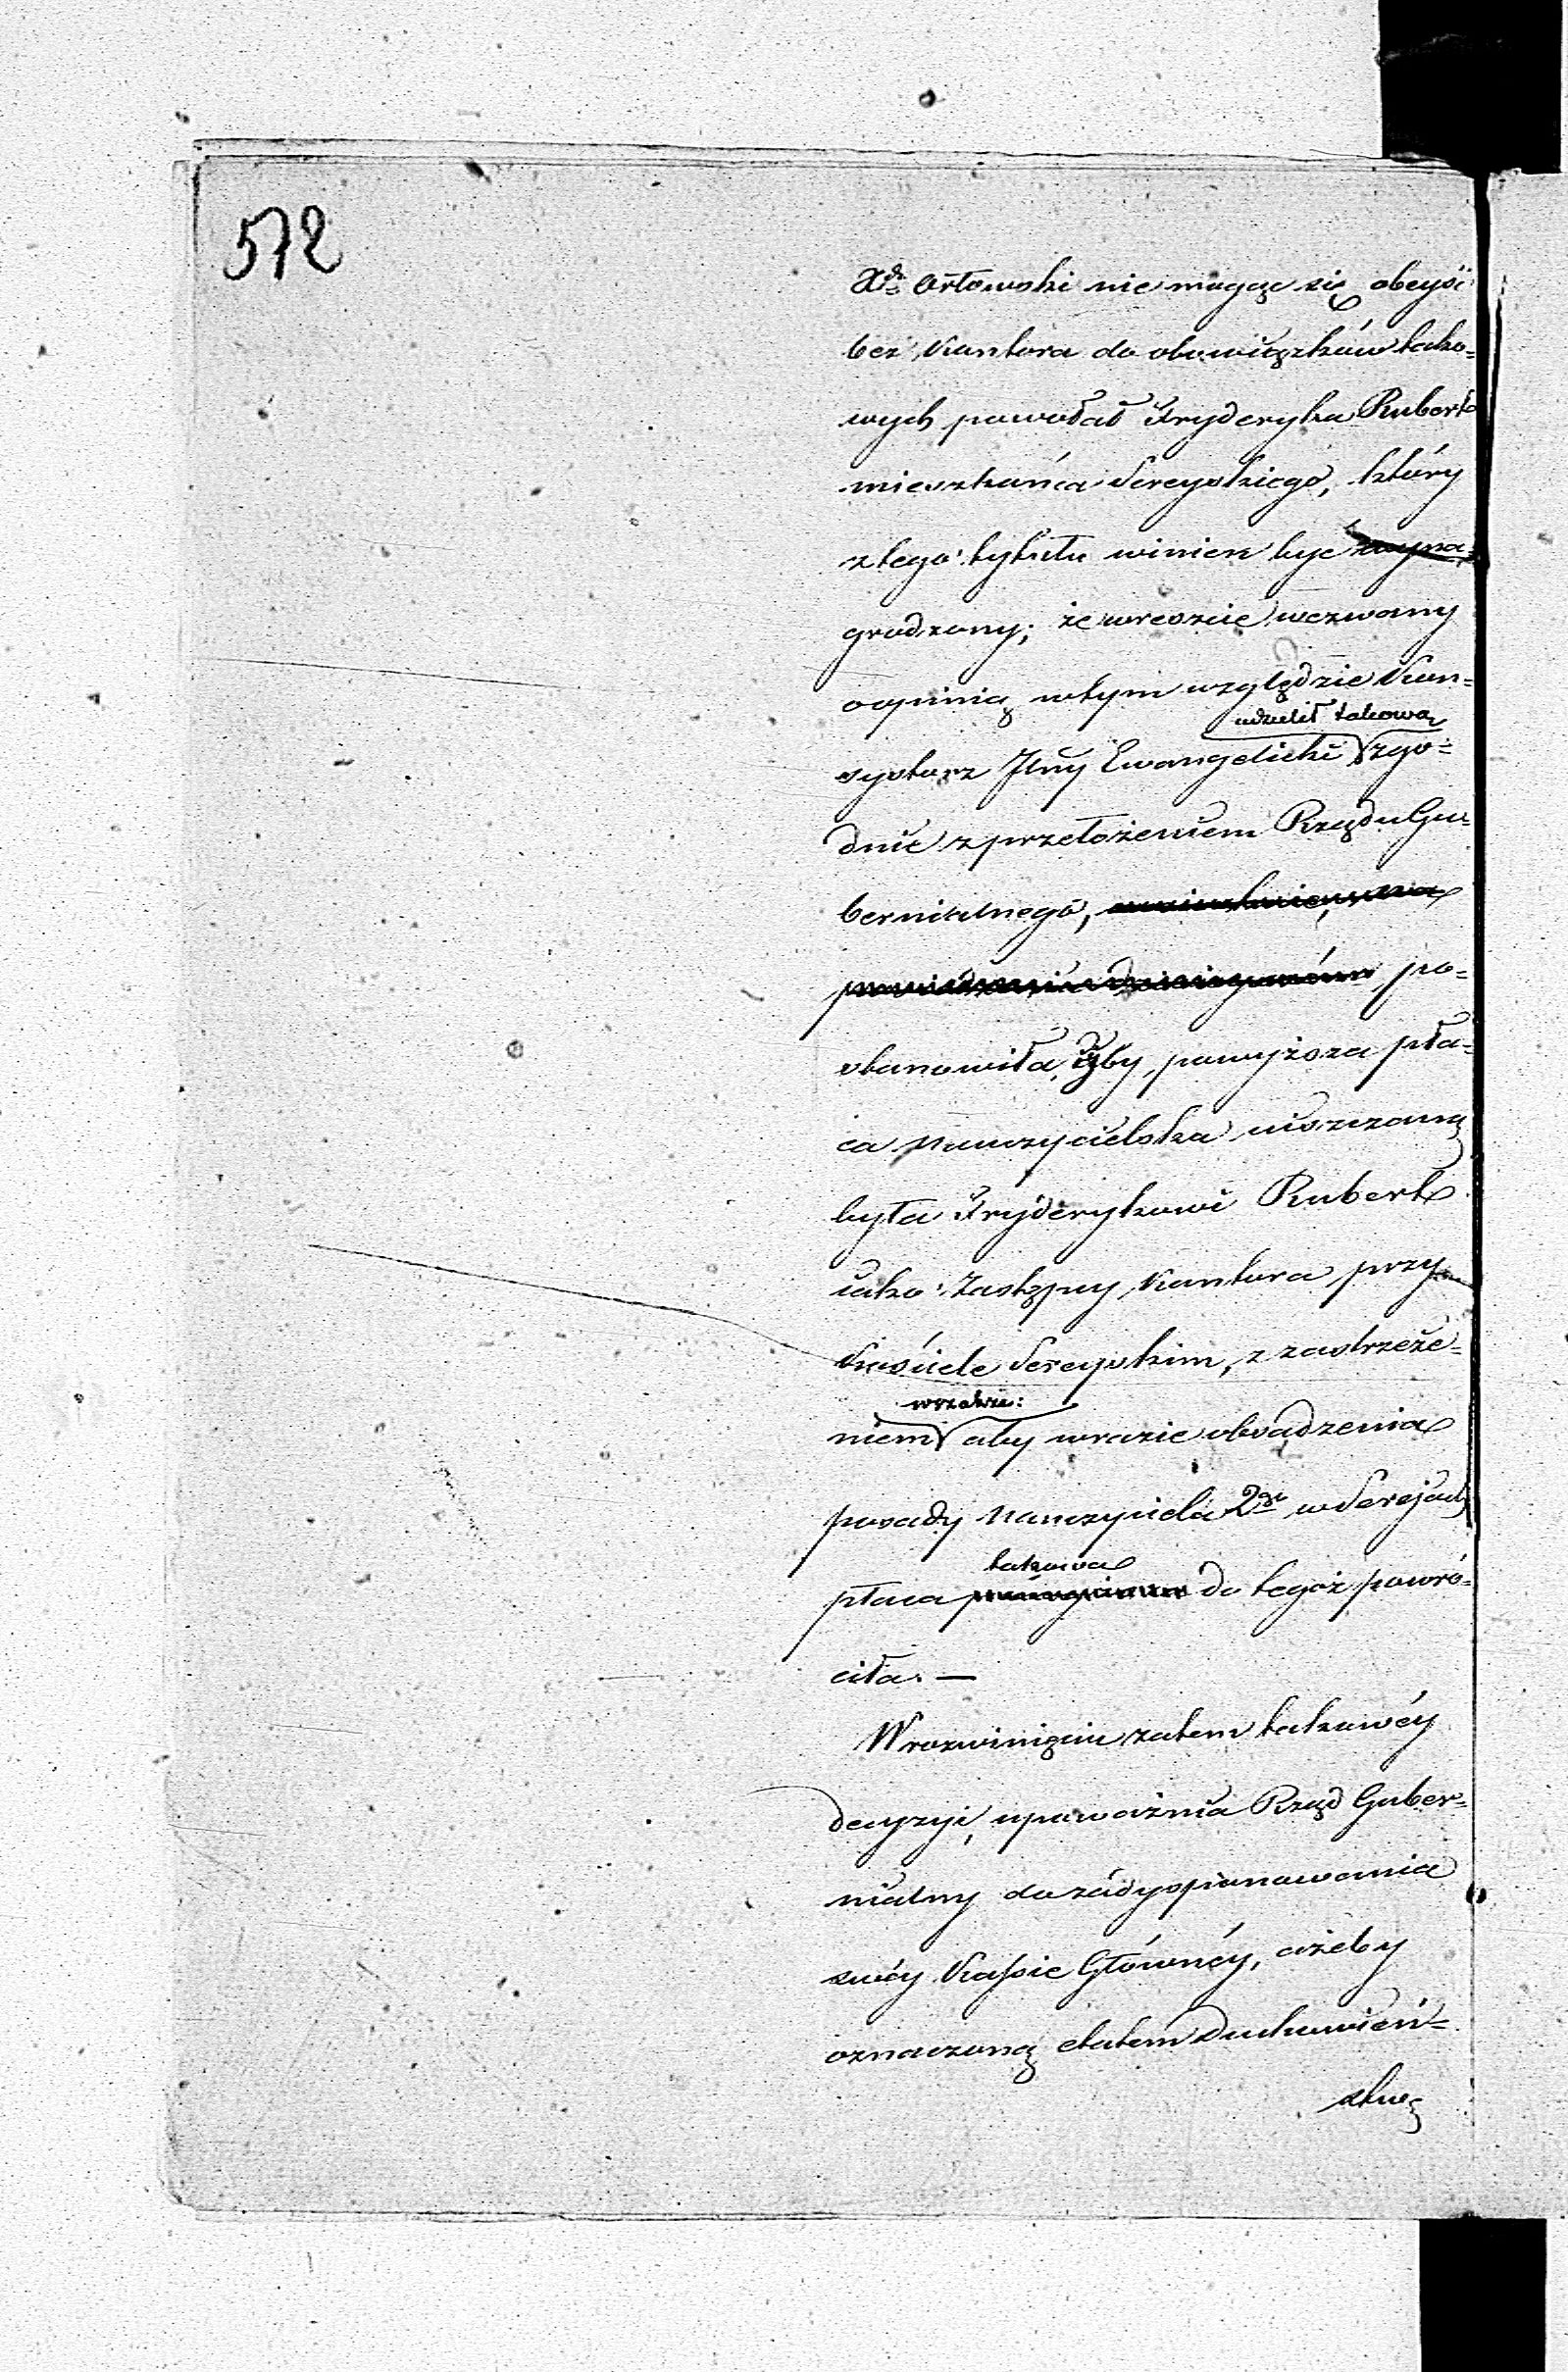 572
Xdz Orłowski nie mogąc się obeyść
bez Kantora do obowiązków tako=
wych powołał Fryderyka Rubert
mieszkańca Sereyskiego, który
z tego tytułu winien być wyna=
grodzony; że wreszcie wezwany
oopinią wtym względzie Kon=
udzielił takową
systorz Jlny Ewangelicki zgo=
dnie z przełożeniem Rządu Gu=
bernialnego,
po=
stanowiła, iżby powyższa pła=
ca Nauczycielska uiszczaną
była Fryderykowi Rubert
iako Zastępcy Kantora przy
Kościele Sereyskim, z zastrzeże=
wszakże:
niem aby wrazie obsadzenia
posady Nauczyciela 2go w Serejach
takowa
płaca do tegoż powró=
ciła. —
W rozwinięciu zatem takowéy
decyzyi, upoważnia Rząd Guber=
nialny do zadysponowania
swéy Kassie Głównéy, ażeby
oznaczoną etatem Duchowień=
stwa